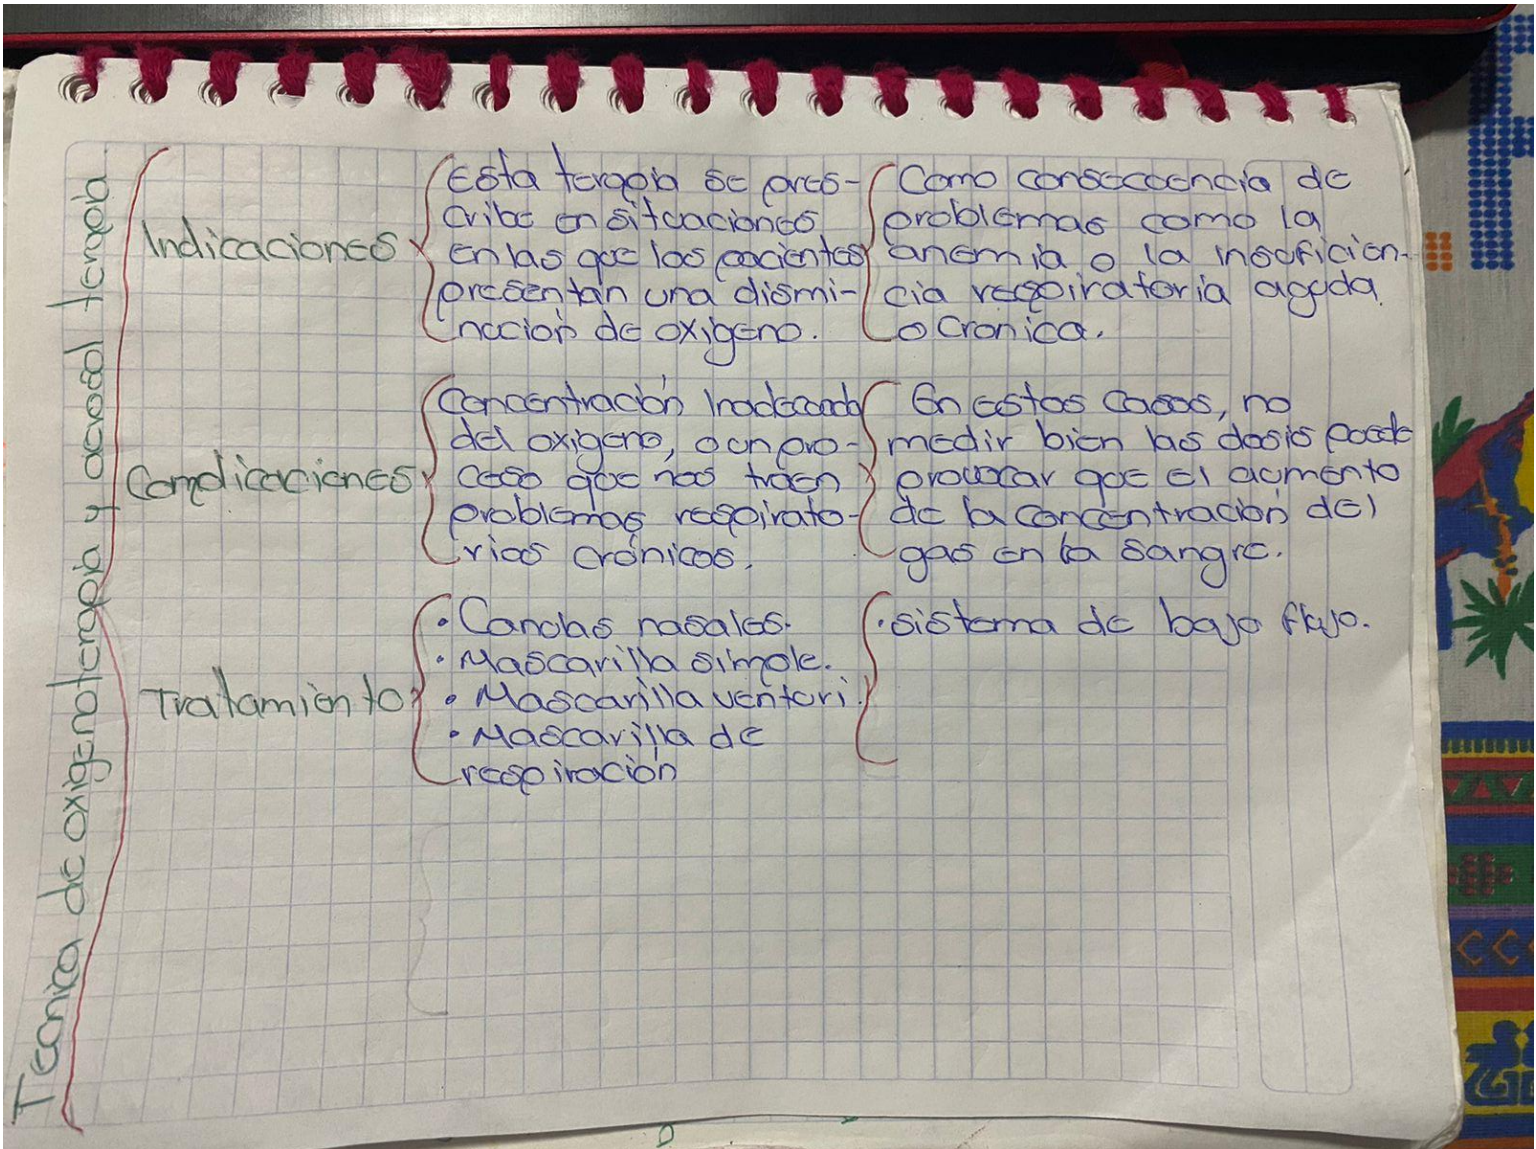 Tecnica de oxigenoterapia y aerosol terapia
Indicaciones
Esta terapia se pres-
cribe en situaciones
en las que los pacientes
presentan una dismi-
nucion de oxigeno.
Como consecuencia de
problemas como la
anemia o la insuficien-
cia respiratoria aguda
o cronica.
Complicaciones
Concentración Inadecuada
del oxigeno, o un pro-
ceso que nos traen
problemas respirato-
rios crónicos.
En estos casos, no
medir bien las dosis puede
provocar que el aumento
de la concentración del
gas en la sangre.
Tratamiento
• Canulas nasales.
• Mascarilla simple.
• Mascarilla venturi.
• Mascarilla de
respiración
• sistema de bajo flujo.